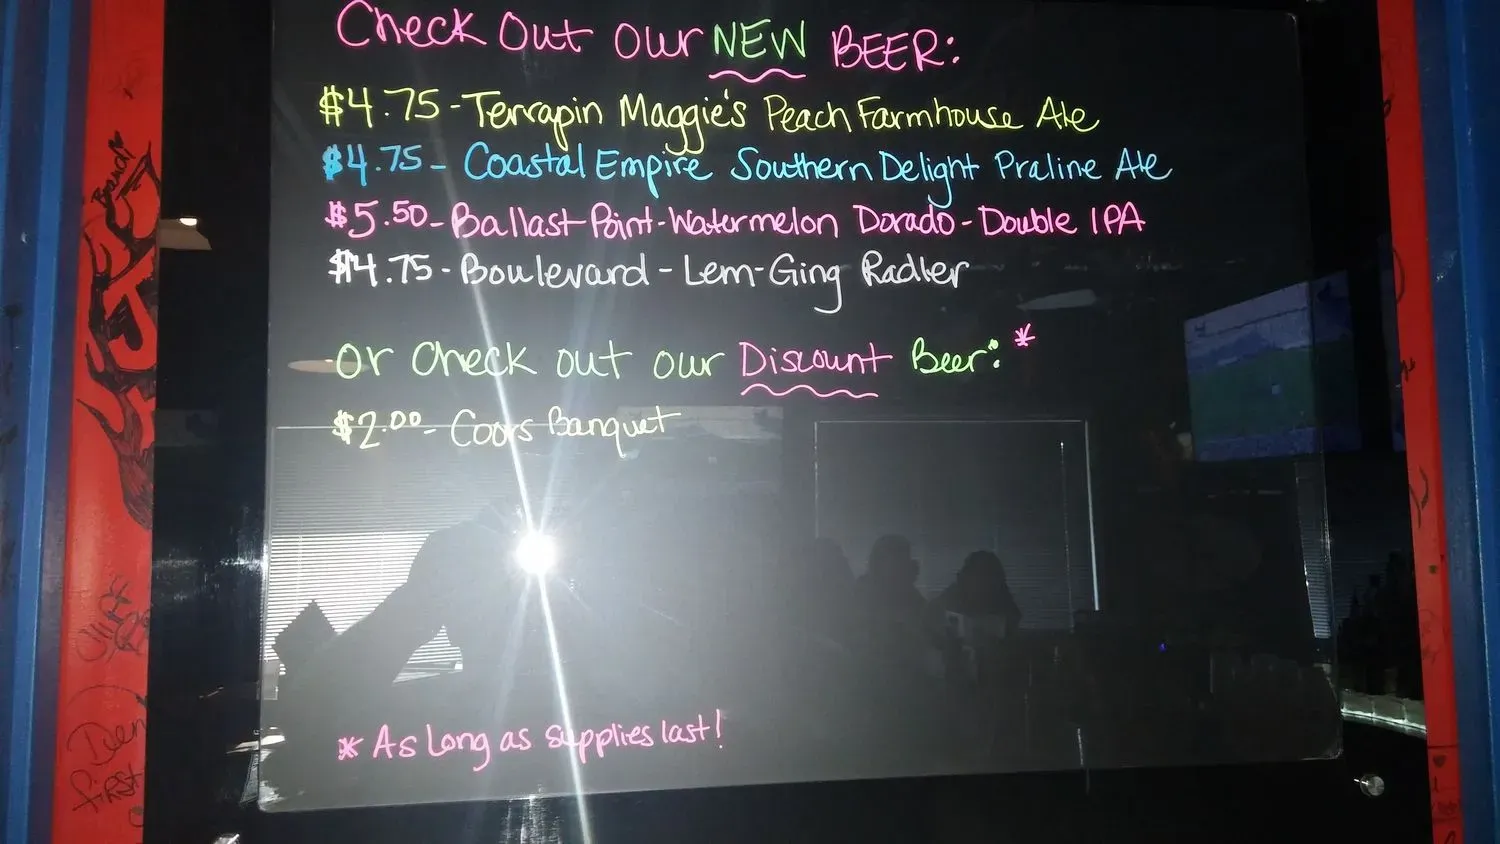 Check Out our NEW BEER:
$4.75 - Terrapin Maggie's Peach Farmhouse Ale
$4.75 - Coastal Empire Southern Delight Praline Ale
$5.50 - Ballast Point - Watermelon Dorado - Double IPA
$4.75 - Boulevard - Lem-Ging Radler
or check out our Discount Beer: *
$2.00 - Coors Banquet
* As long as supplies last!
first